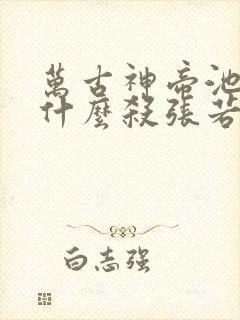 萬古神帝池
什麼殺張若
白志强